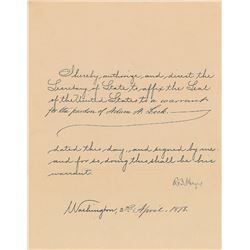 I hereby authorize and direct the
Secretary of State to affix the Seal
of the United States to a warrant
for the pardon of Adam A.
dated this day, and signed by me
and for so doing this shall be his
warrant.
R.B. Hayes
Washington, April, 187